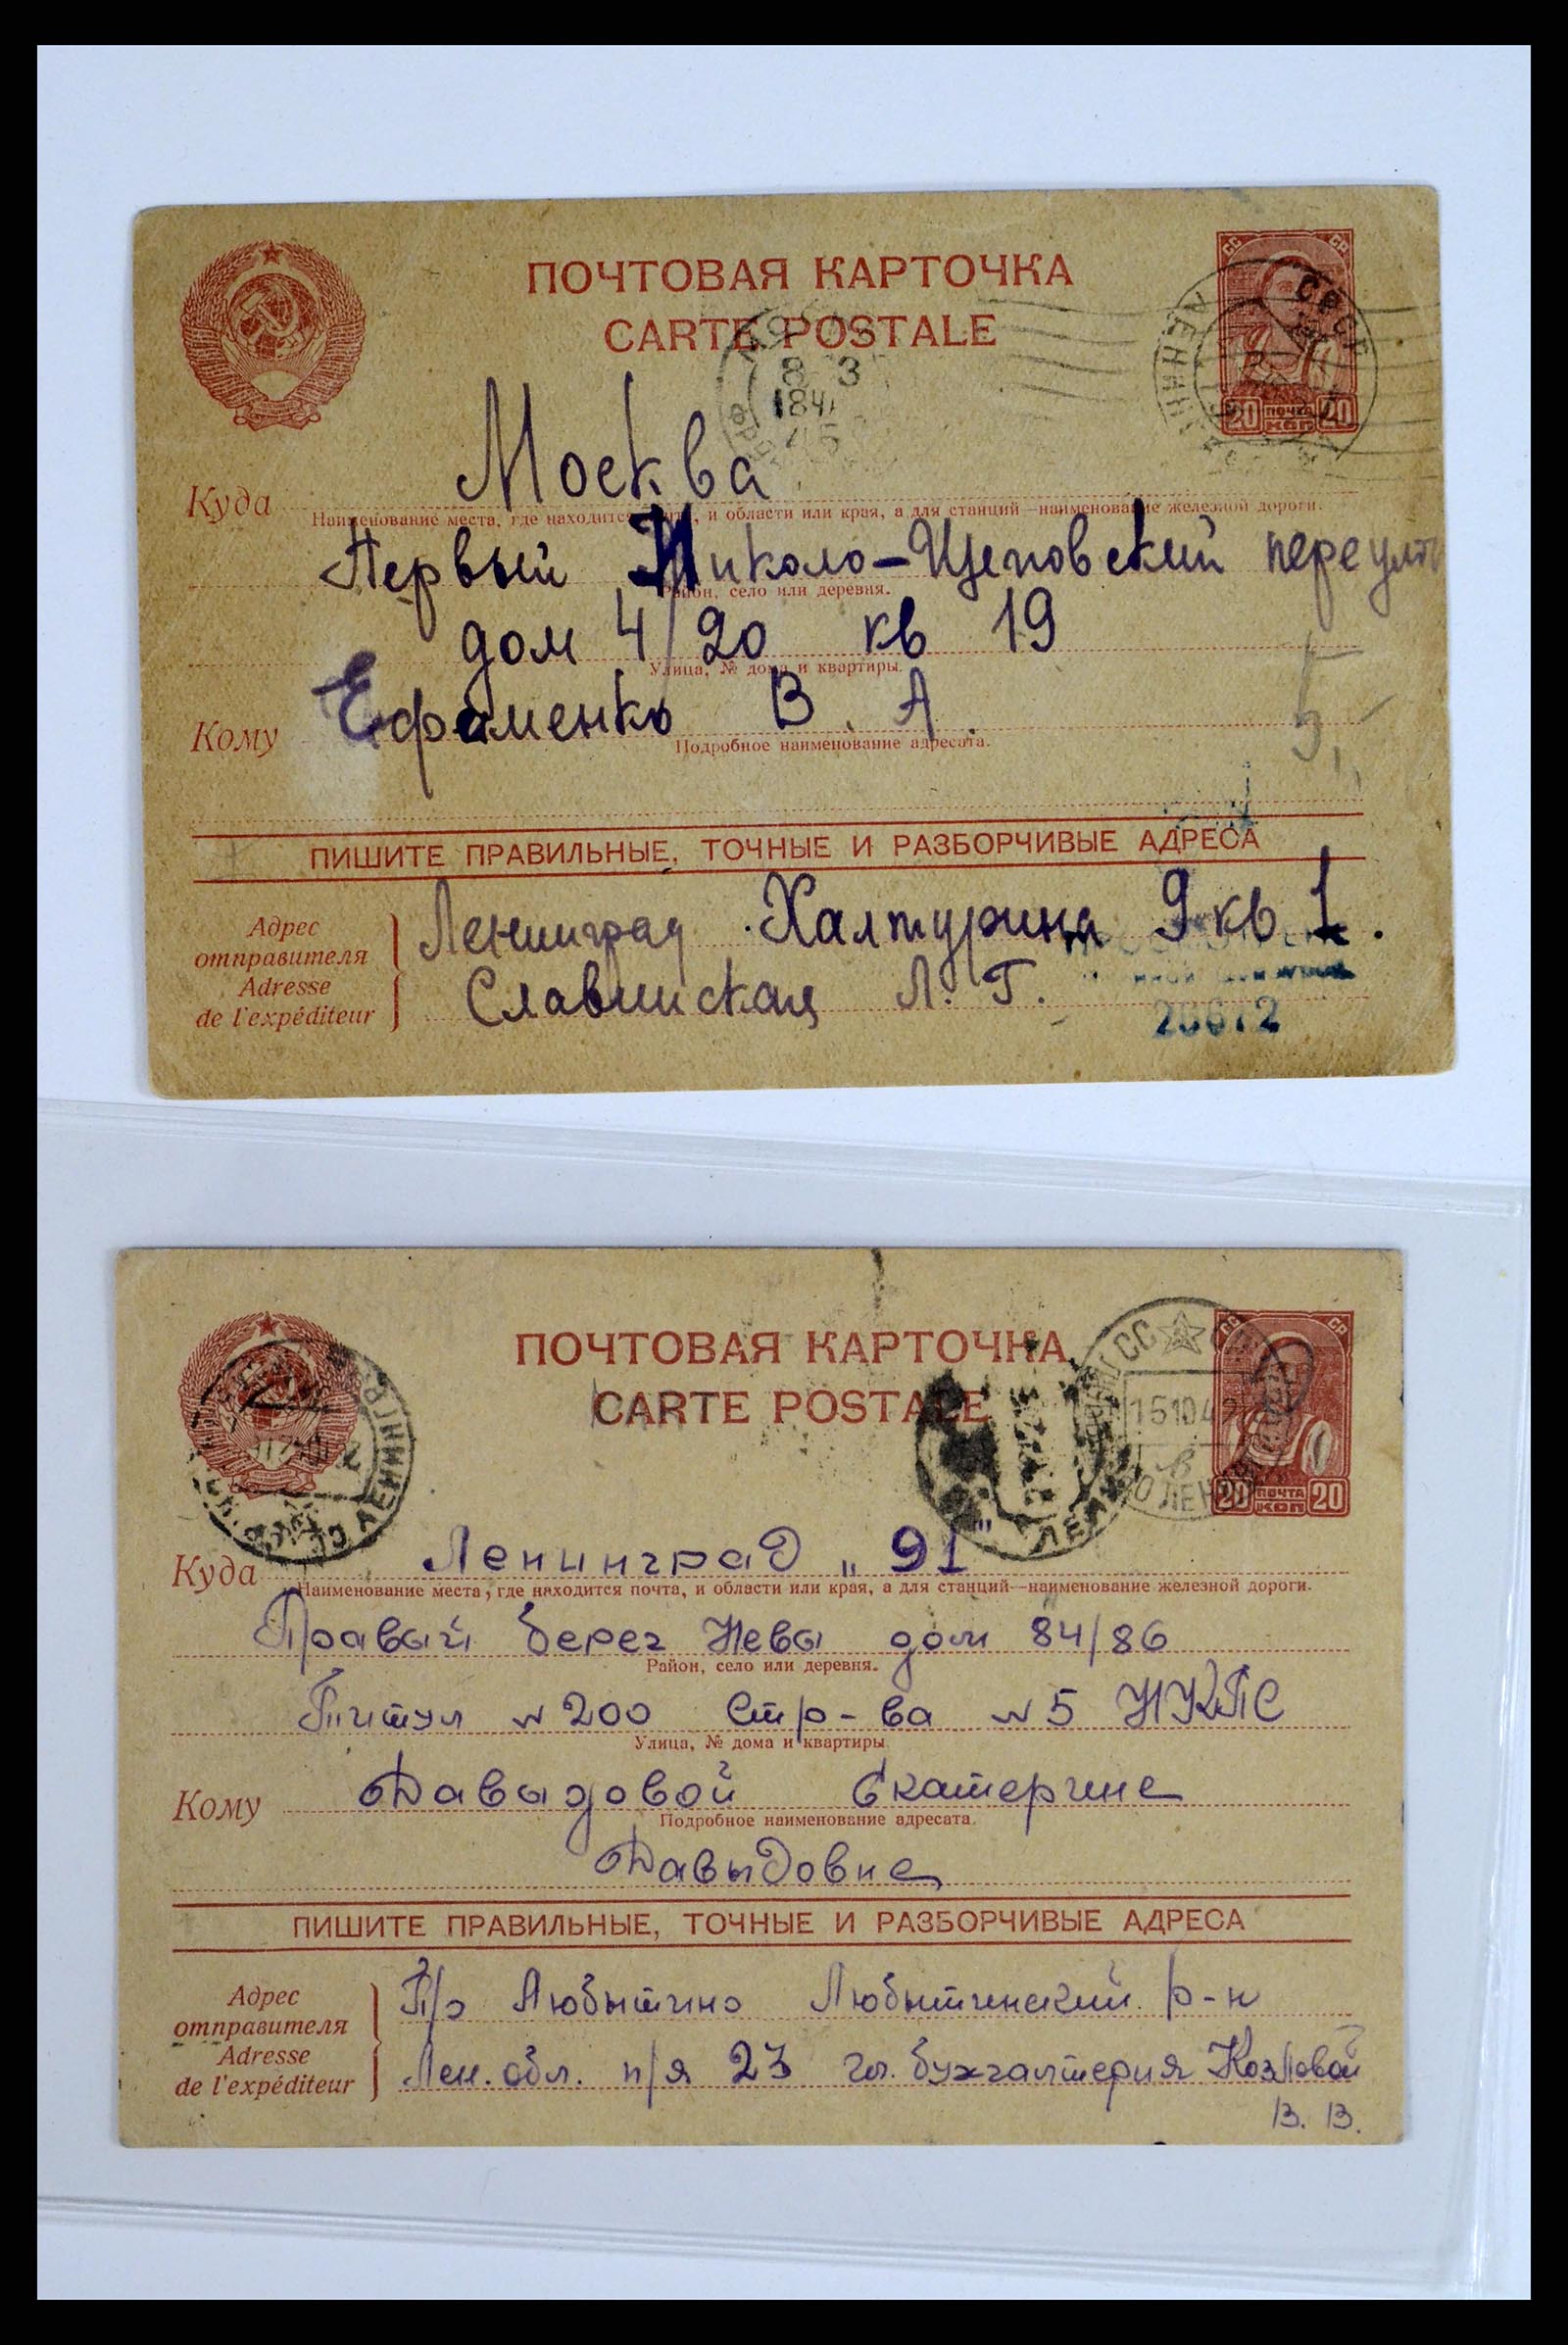 ПОЧТОВАЯ КАРТОЧКА
CARTE POSTALE
СС СР
20 ПОЧТА КОП 20
8 3
45
Куда Москва
Наименование места, где находится почта, и области или края, а для станций—наименование железной дороги.
Первый Николо-Щеповский переулок
Район, село или деревня.
дом 4/20 кв 19
Улица, № дома и квартиры.
Кому Ефаменко В. А.
Подробное наименование адресата.
5
ПИШИТЕ ПРАВИЛЬНЫЕ, ТОЧНЫЕ И РАЗБОРЧИВЫЕ АДРЕСА
Адрес отправителя
Adresse de l'expéditeur
Ленинград Халтурина 9 кв 1.
Славинская Л. Г.
ПОЧТОВАЯ КАРТОЧКА
CARTE POSTALE
СС СР
20 ПОЧТА КОП 20
151042
в
Куда Ленинград „91"
Наименование места, где находится почта, и области или края, а для станций—наименование железной дороги.
Правый берег Невы дом 84/86
Район, село или деревня.
Титул N 200 Стр-ва N 5 НКПС
Улица, № дома и квартиры.
Кому Давыдовой Екатерине
Подробное наименование адресата.
Давыдовне
ПИШИТЕ ПРАВИЛЬНЫЕ, ТОЧНЫЕ И РАЗБОРЧИВЫЕ АДРЕСА
Адрес отправителя
Adresse de l'expéditeur
П/о Любытино Любытинский р-н
Лен. обл. п/я 23 гл. бухгалтерия Козловой
В. В.